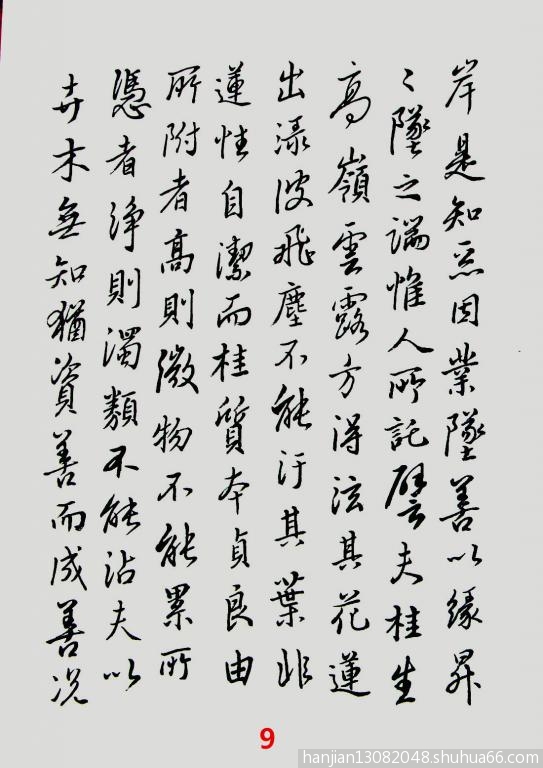 岸是知惡因業墜善以緣昇
〻墜之端惟人所託譬夫桂生
高嶺雲露方得泫其花蓮
出淥波飛塵不能汙其葉非
蓮性自潔而桂質本貞良由
所附者高則微物不能累所
憑者淨則濁類不能沾夫以
卉木無知猶資善而成善況
9
hanjian13082048.shuhua66.com